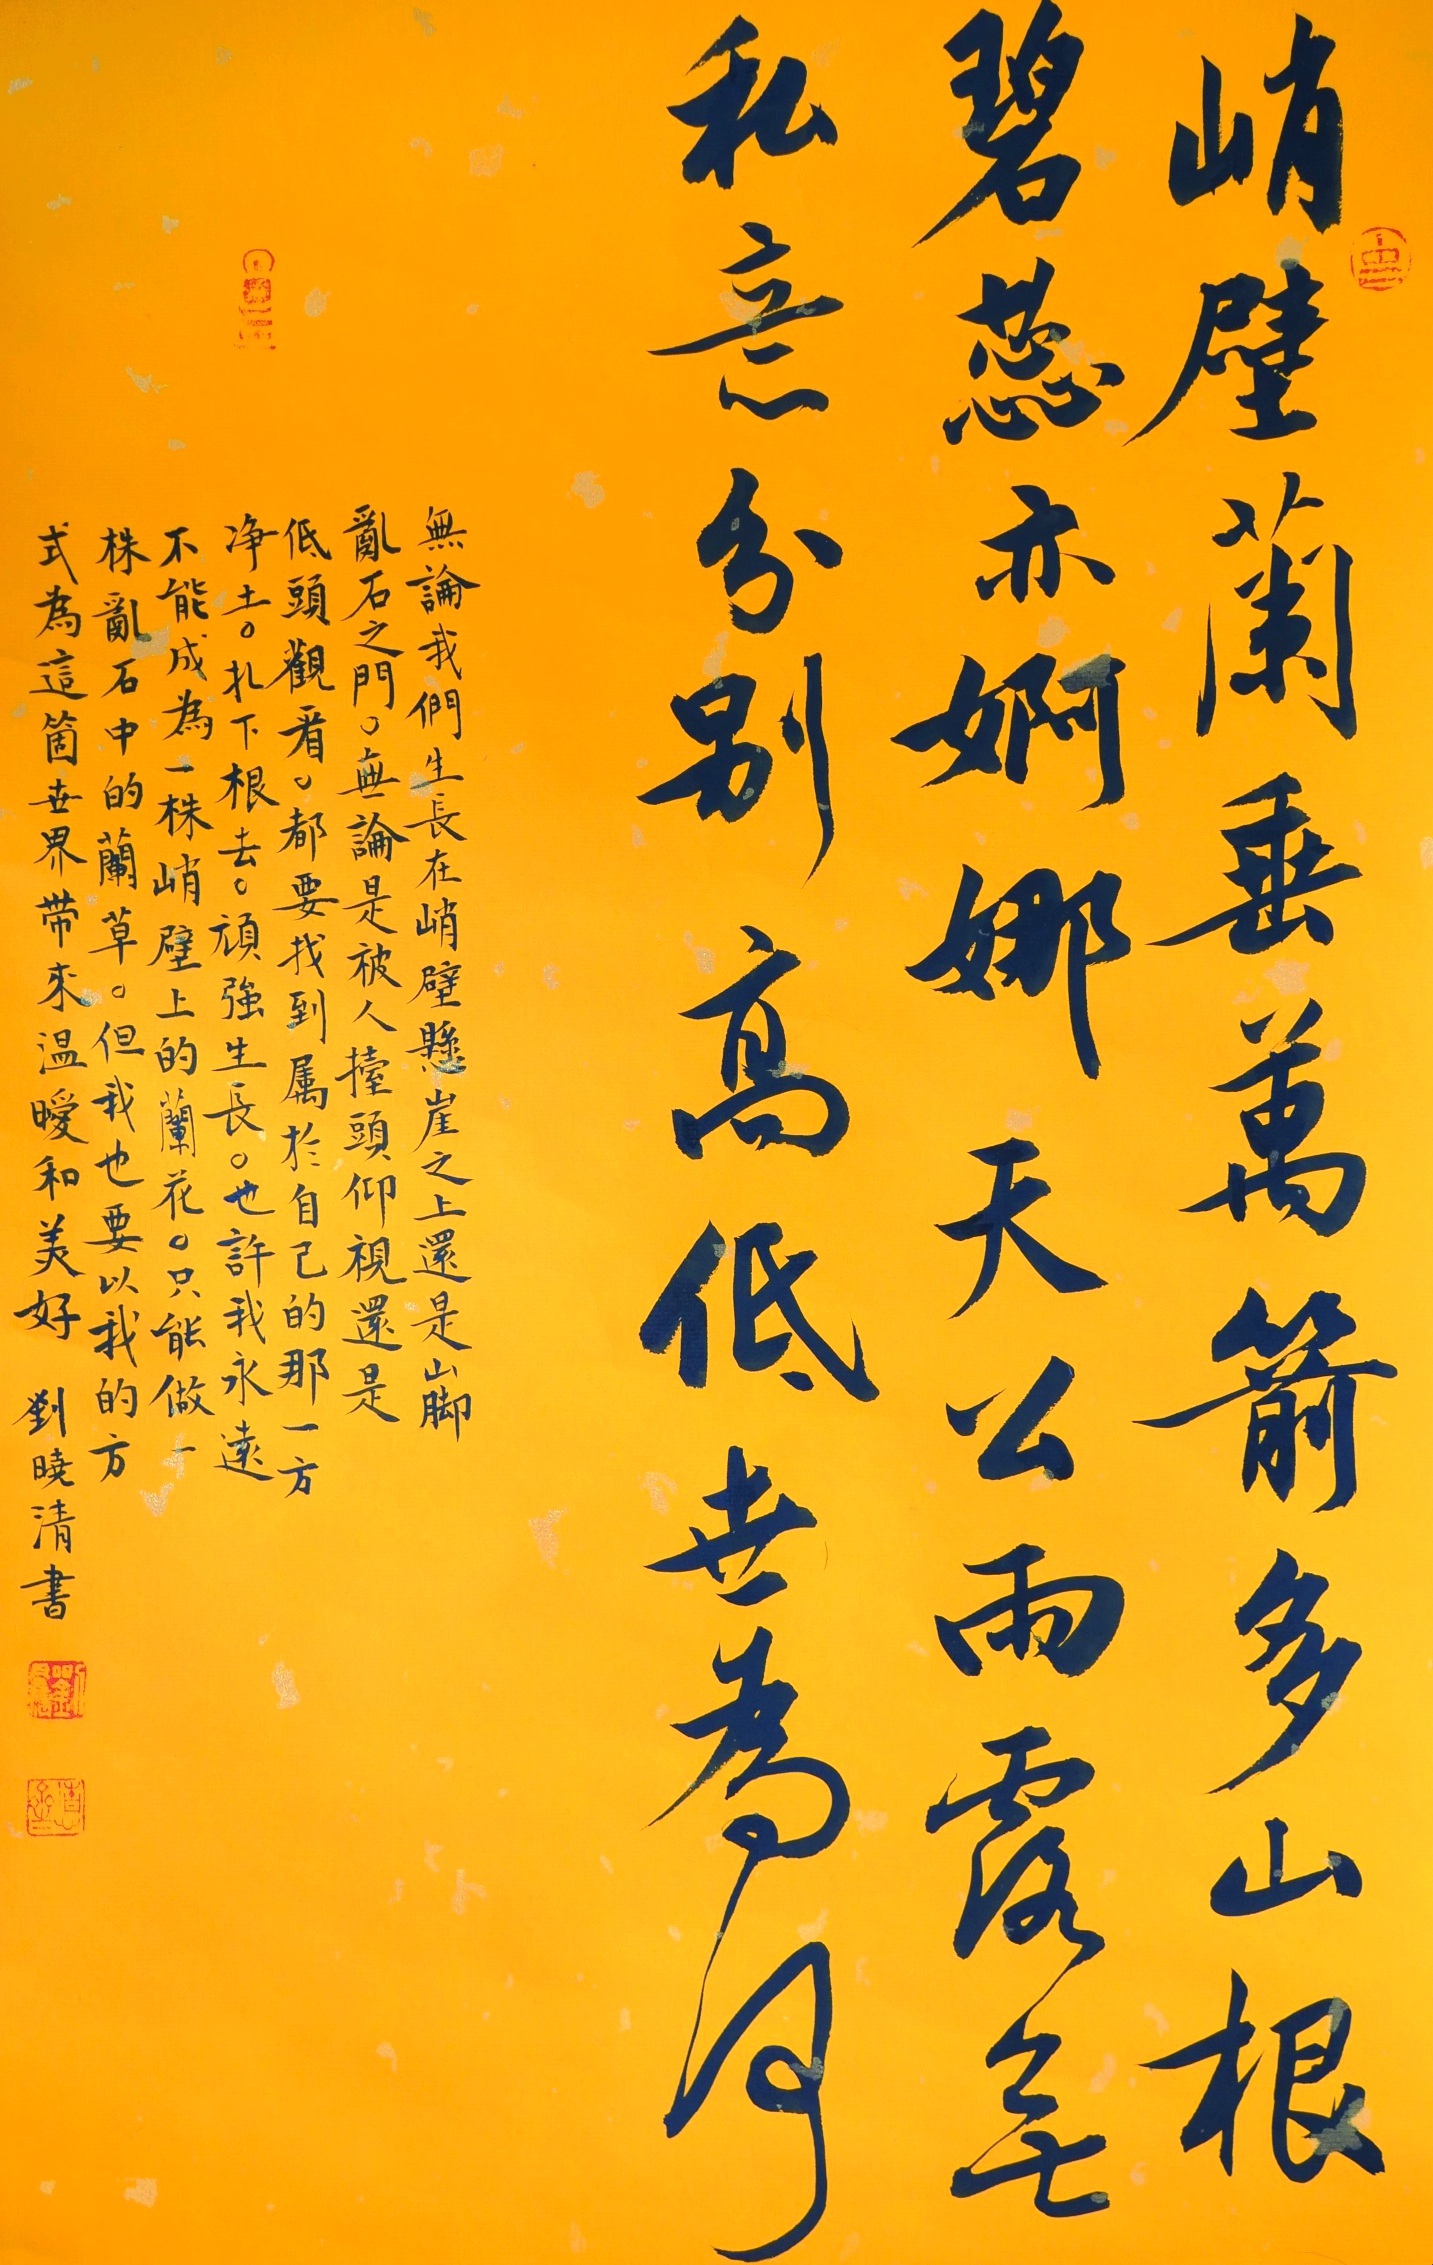 峭壁蘭垂萬箭多山根
碧蕊亦婀娜天公雨露無
私意分别高低世為何
無論我們生長在峭壁懸崖之上還是山脚
亂石之門。無論是被人擡頭仰視還是
低頭觀看。都要找到属於自己的那一方
净土。扎下根去。頑強生長。也許我永遠
不能成為一株峭壁上的蘭花。只能做一
株亂石中的蘭草。但我也要以我的方
式為這箇世界带來温暧和美好 劉曉清書